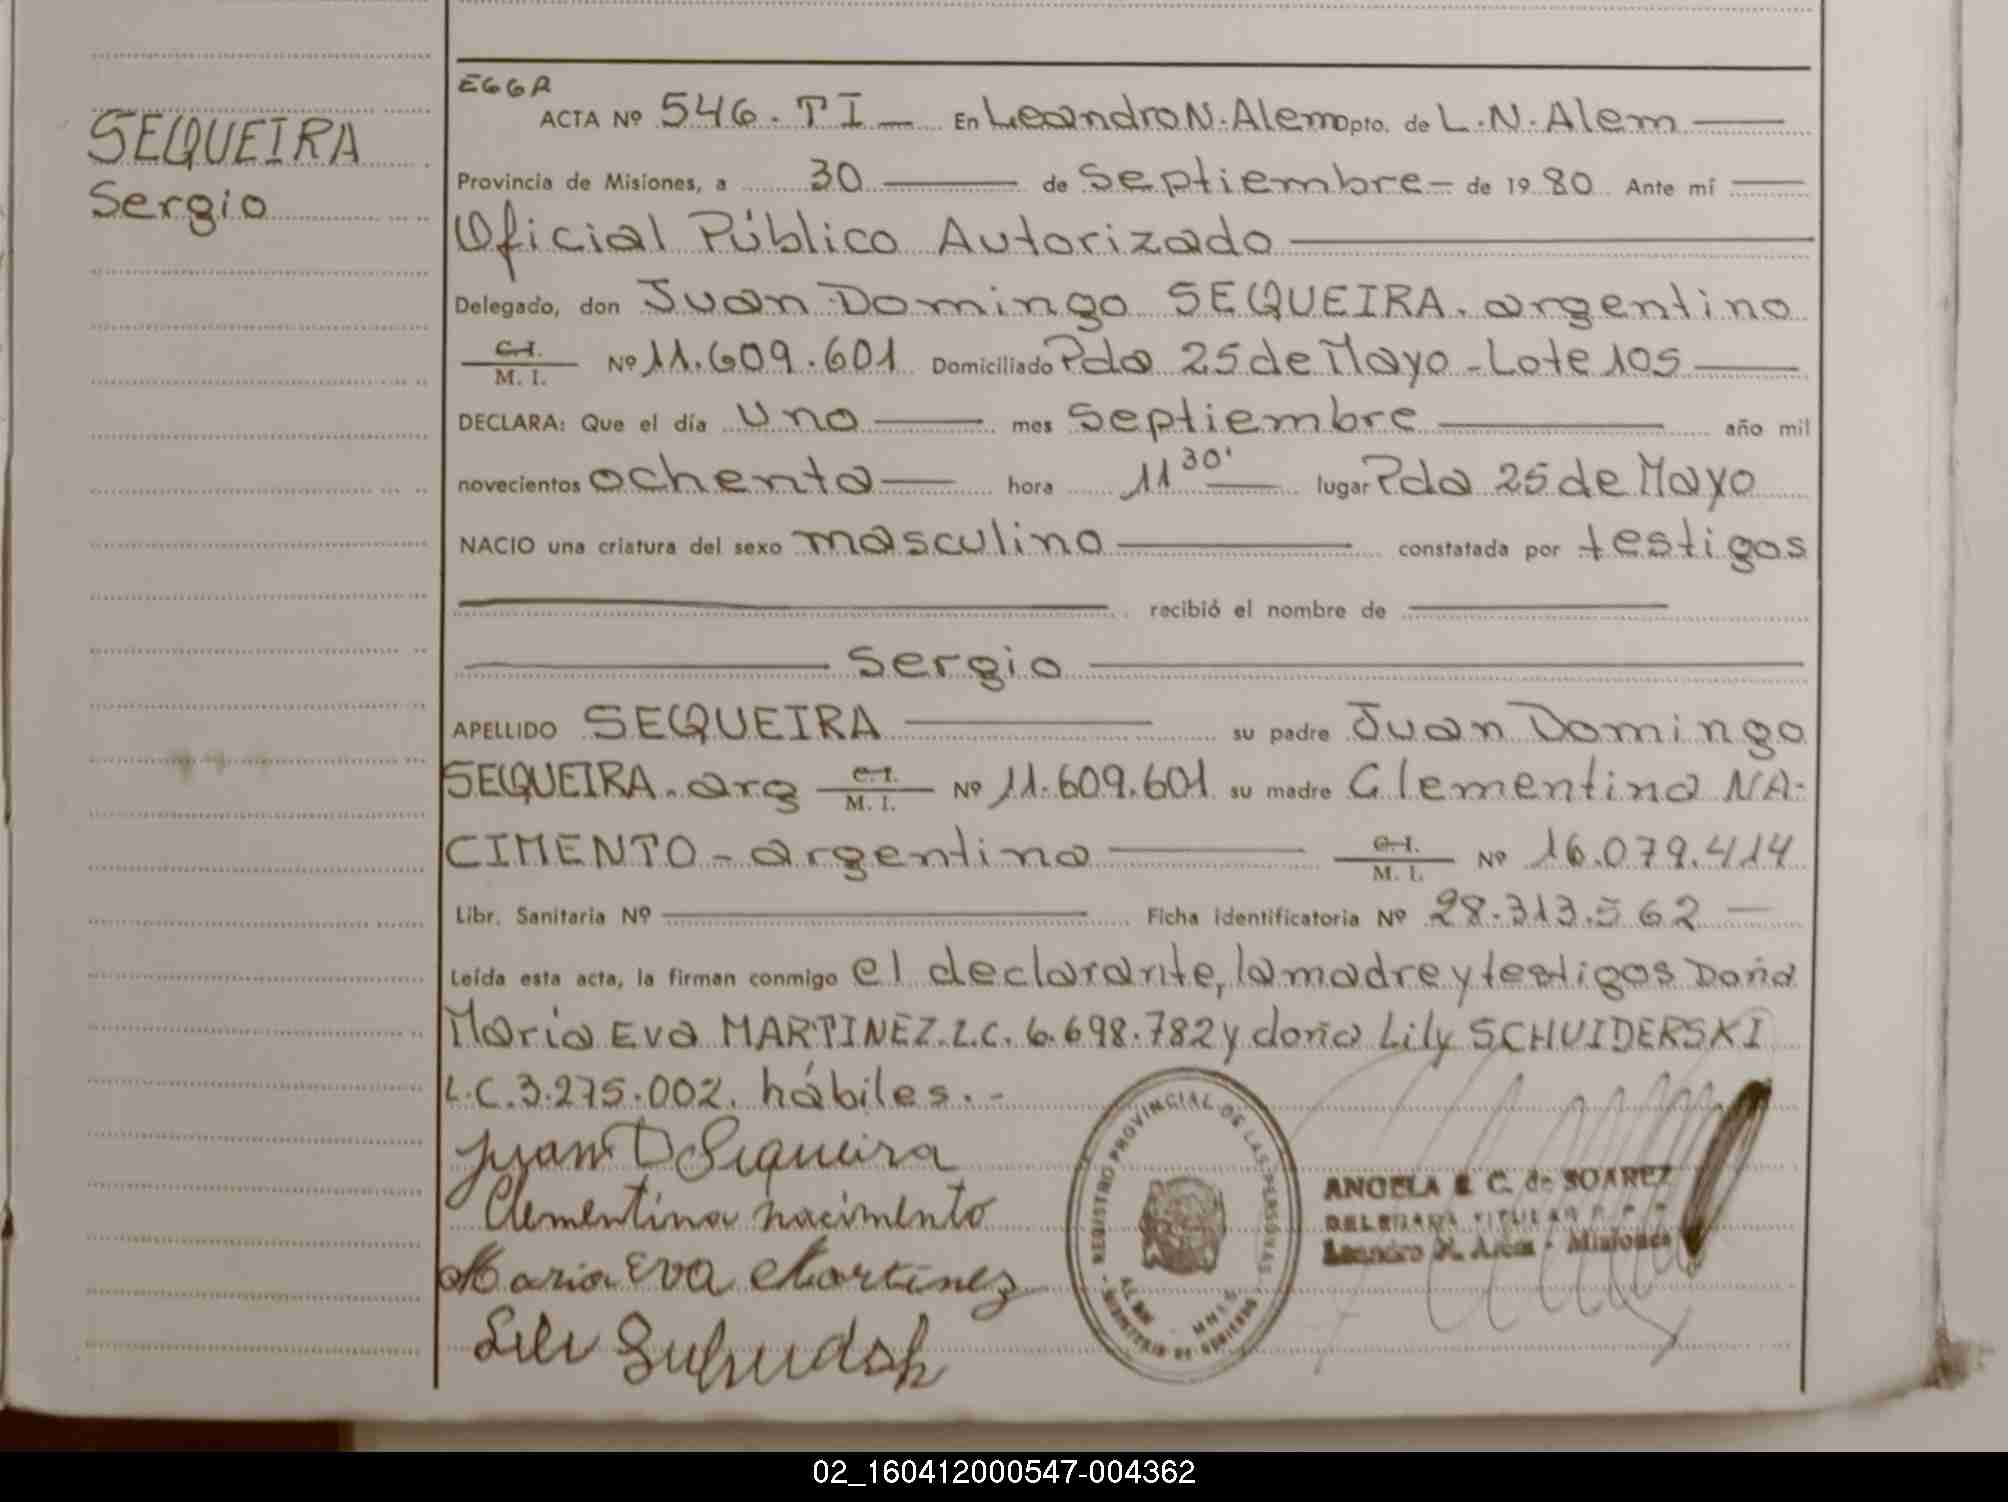 SEQUEIRA
Sergio
EGGR
ACTA Nº 546. T I — En Leandro N. Alem Dpto. de L. N. Alem —
Provincia de Misiones, a 30 — de Septiembre — de 1980 Ante mí —
Oficial Público Autorizado —
Delegado, don Juan Domingo SEQUEIRA. argentino
C.I.
M. I. Nº 11.609.601 Domiciliado Pda 25 de Mayo - Lote 105 —
DECLARA: Que el día uno — mes Septiembre — año mil
novecientos ochenta — hora 11 30' — lugar Pda 25 de Mayo
NACIO una criatura del sexo masculino — constatada por testigos
— recibió el nombre de —
— Sergio —
APELLIDO SEQUEIRA — su padre Juan Domingo
SEQUEIRA. arg C.I.
M. I. Nº 11.609.601 su madre Clementina NA-
CIMENTO - argentina — C.I.
M. I. Nº 16.079.414
Libr. Sanitaria Nº — Ficha identificatoria Nº 28.313.562 —
Leída esta acta, la firman conmigo el declarante, la madre y testigos Doña
María Eva MARTINEZ. L.C. 6.698.782 y doña Lily SCHUIDERSKI
L.C. 3.275.002. hábiles. -
Juan D Sequeira
Clementina nacimento
Maria Eva Martinez
REGISTRO PROVINCIAL DE LAS PERSONAS
MINISTERIO DE GOBIERNO
ANGELA E C. de SOAREZ
DELEGADA TITULAR
Leandro N. Alem - Misiones
02_160412000547-004362